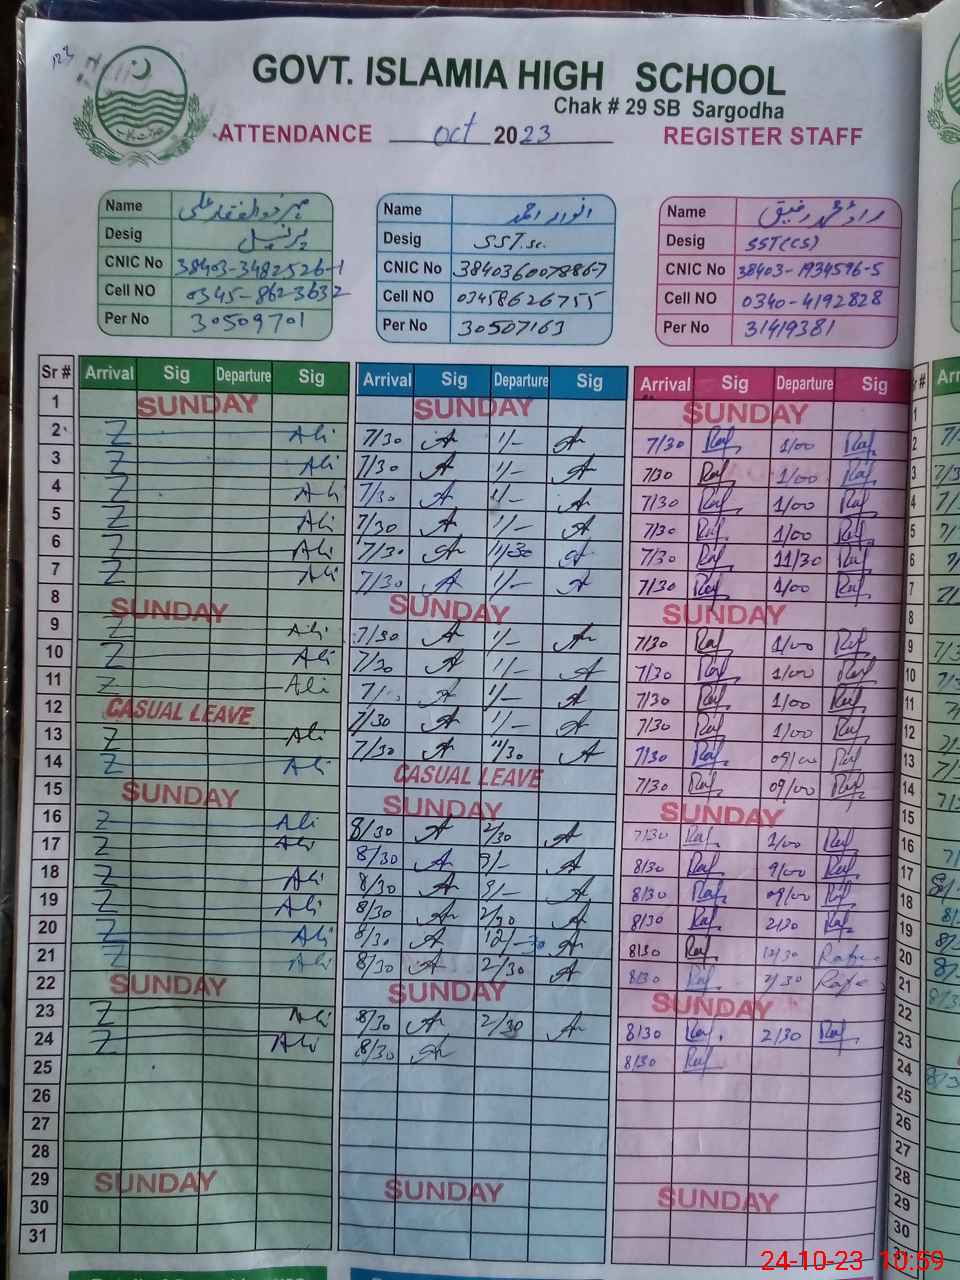 GOVT. ISLAMIA HIGH SCHOOL
Chak # 29 SB Sargodha
ATTENDANCE Oct 2023 REGISTER STAFF
Name
Desig پرنسپل
CNIC No 38403-3482526-1
Cell NO 0345-8623632
Per No 30509701
Name انوار احمد
Desig SST.sc.
CNIC No 3840360078867
Cell NO 03458626755
Per No 30507163
Name راؤ محمد رفیق
Desig SST(CS)
CNIC No 38403-1934596-5
Cell NO 0340-4192828
Per No 31419381
Sr # Arrival Sig Departure Sig Arrival Sig Departure Sig Arrival Sig Departure Sig
1 SUNDAY SUNDAY SUNDAY 1
2 Z Ali 7/30 A 1/- A 7/30 Raf 1/00 Raf 2
3 Z Ali 7/30 A 1/- A 7/30 Raf 1/00 Raf 3
4 Z Ali 7/30 A 1/- A 7/30 Raf 1/00 Raf 4
5 Z Ali 7/30 A 1/- A 7/30 Raf 1/00 Raf 5
6 Z Ali 7/30 A 11/30 A 7/30 Raf 11/30 Raf 6
7 Z Ali 7/30 A 1/- A 7/30 Raf 1/00 Raf 7
8 SUNDAY SUNDAY SUNDAY 8
9 Z Ali 7/30 A 1/- A 7/30 Raf 1/00 Raf 9
10 Z Ali 7/30 A 1/- A 7/30 Raf 1/00 Raf 10
11 Z Ali A 1/- A 7/30 Raf 1/00 Raf 11
12 CASUAL LEAVE 7/30 A 1/- A 7/30 Raf 1/00 Raf 12
13 Z Ali 7/30 A 11/30 A 7/30 Raf 09/00 Raf 13
14 Z Ali CASUAL LEAVE 7/30 Raf 09/00 Raf 14
15 SUNDAY SUNDAY SUNDAY 15
16 Z Ali 8/30 A 2/30 A 7/30 Raf 1/00 Raf 16
17 Z Ali 8/30 A 9/- A 8/30 Raf 9/00 Raf 17
18 Z Ali 8/30 A 9/- A 8/30 Raf 09/00 Raf 18
19 Z Ali 8/30 A 2/30 A 8/30 Raf 2/30 Raf 19
20 Z Ali 8/30 A 12/-30 A 8/30 Raf 12/30 20
21 Z Ali 8/30 A 2/30 A 8/30 Raf 2/30 21
22 SUNDAY SUNDAY SUNDAY 22
23 Z Ali 8/30 A 2/30 A 8/30 Raf 2/30 Raf 23
24 Z Ali 8/30 A 8/30 Raf 24
25 25
26 26
27 27
28 28
29 SUNDAY SUNDAY SUNDAY 29
30 30
31
24-10-23 10:59